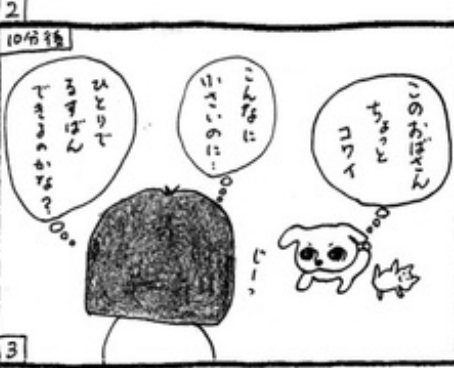 2
10分後
このおばさん
ちょっと
コワイ
こんなに
小さいのに…
ひとりで
るすばん
できるのかな？
じーっ
3